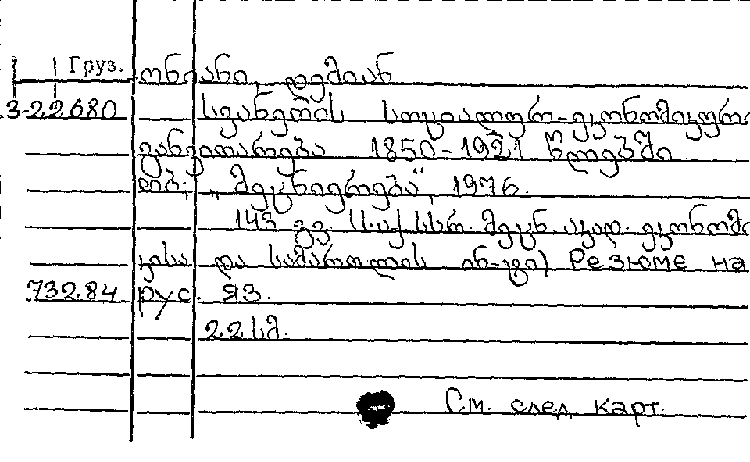 Груз. ონიანი, დემიან
3-22680 სვანეთის სოციალურ-ეკონომიკური
განვითარება 1850-1921 წლებში
თბ., „მეცნიერება", 1976.
143 გვ. (საქ.სსრ. მეცნ. აკად. ეკონომი
კისა და სამართლის ინ-ტი) Резюме на
732.84 рус. яз.
22 სმ.
См. след. карт.